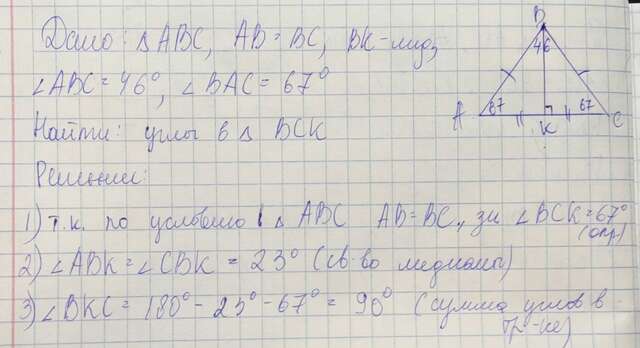 Дано: △ ABC, AB = BC, BK - мед,
∠ABC = 46°, ∠BAC = 67°
Найти: углы в △ BCK
Решение:
1) т.к. по условию в △ ABC AB = BC, зн ∠BCK = 67°
(опр)
2) ∠ABK = ∠CBK = 23° (св-во медианы)
3) ∠BKC = 180° - 23° - 67° = 90° (сумма углов в
тр-ке)
B
46
A
67
K
67
C